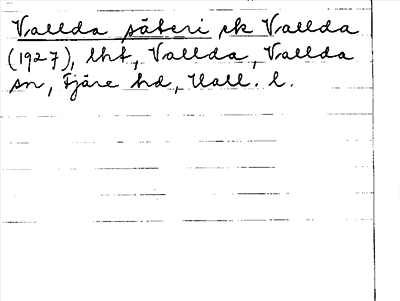 Vallda säteri sk Vallda
(1927), lht, Vallda, Vallda
sn, Fjäre hd, Hall. l.